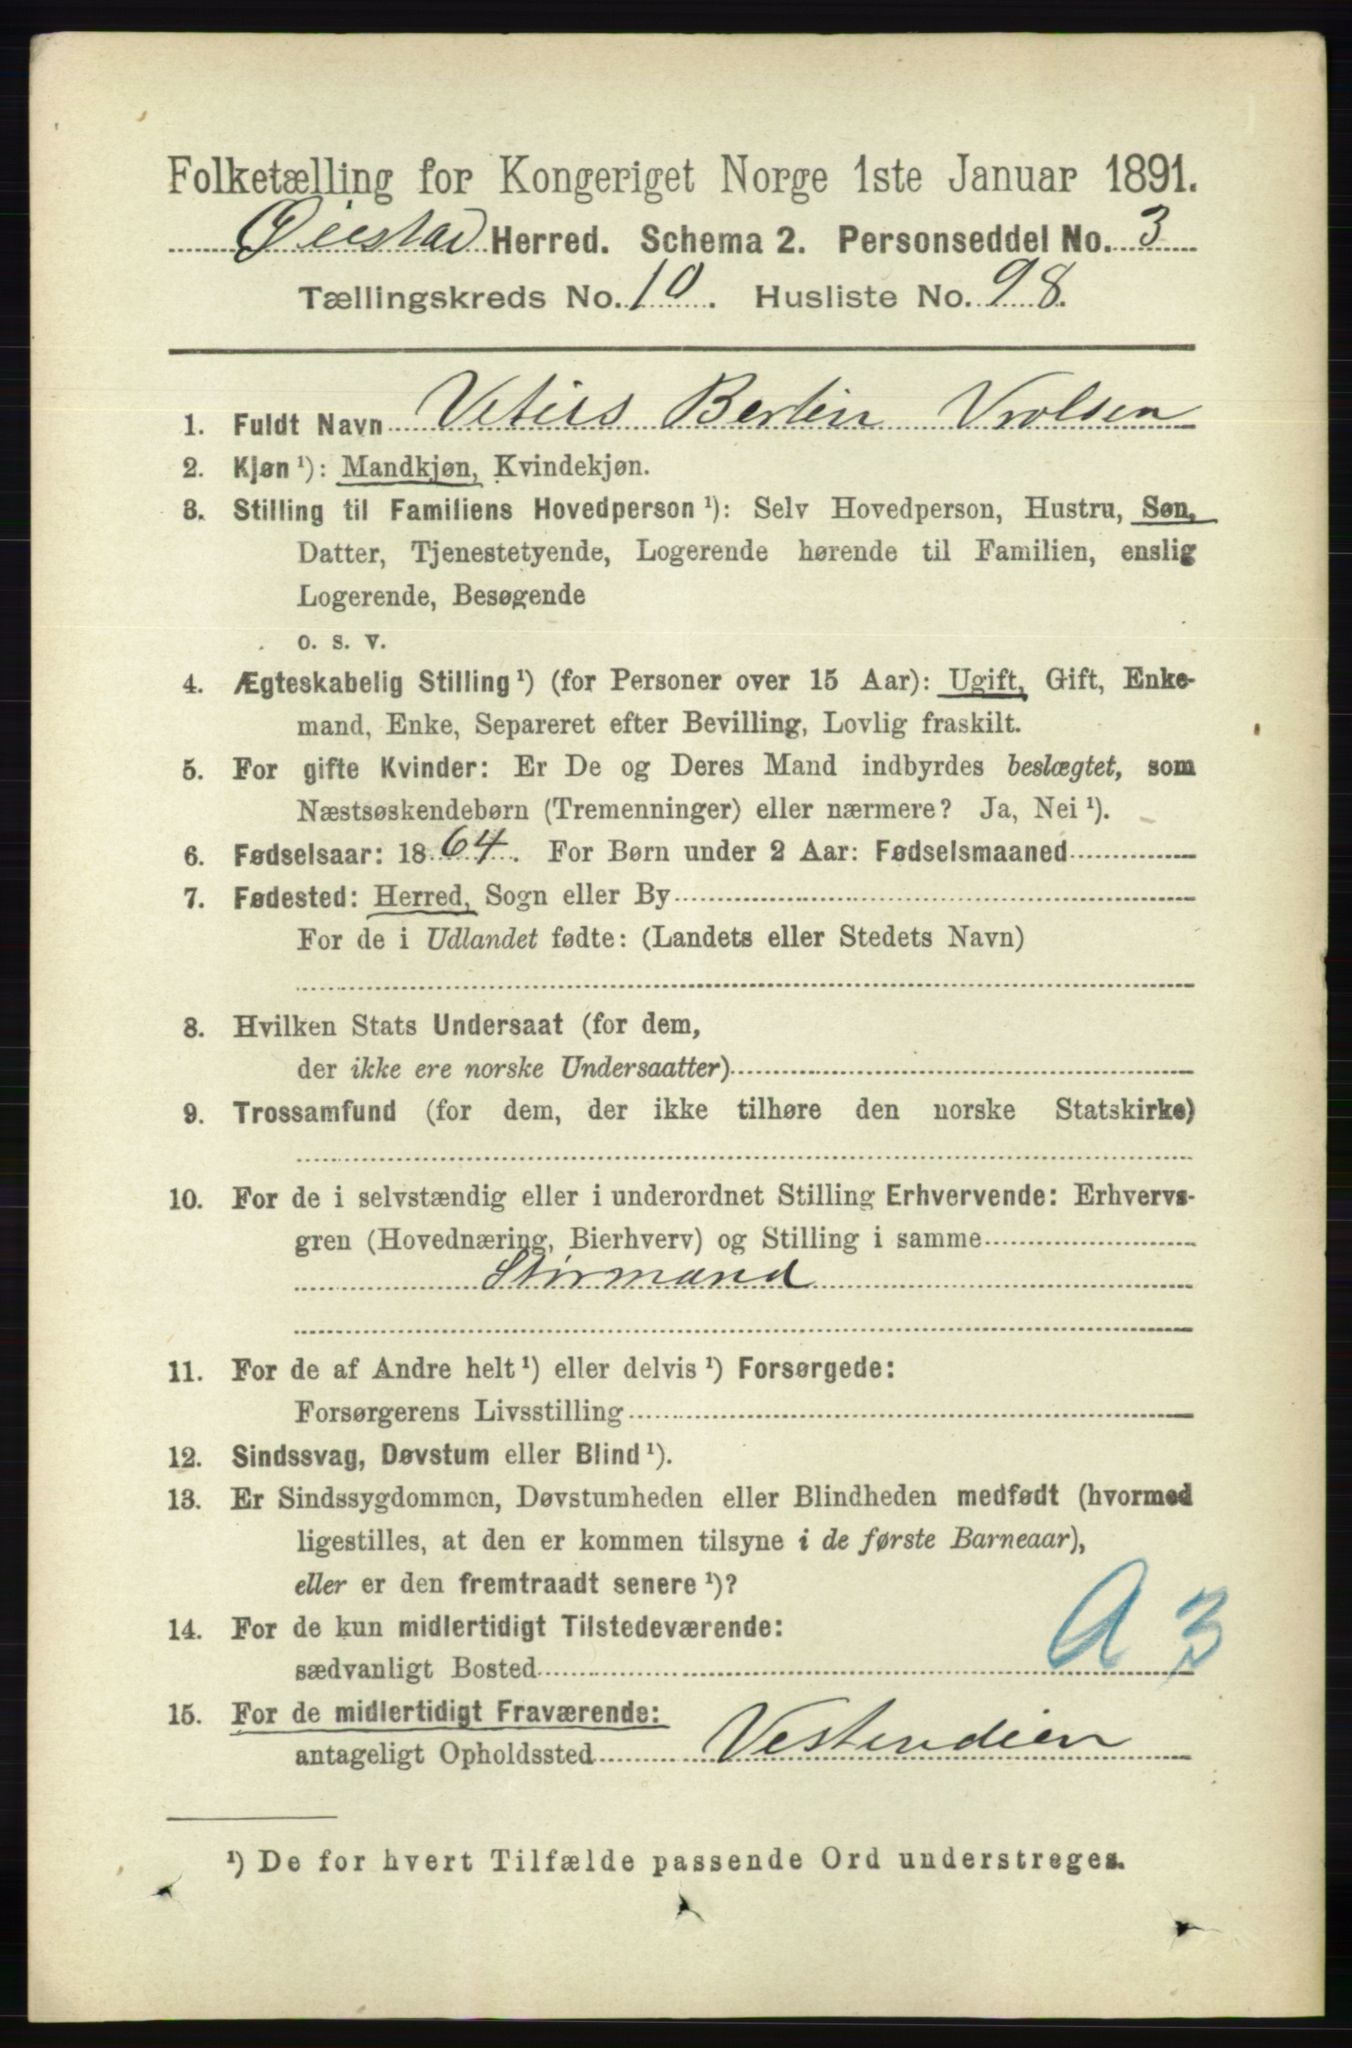 Folketælling for Kongeriget Norge 1ste Januar 1891.
Øiestad Herred. Schema 2. Personseddel No. 3
Tællingskreds No. 10. Husliste No. 98.
1. Fuldt Navn Bertin Vrolsen
2. Kjøn ¹): Mandkjøn, Kvindekjøn.
3. Stilling til Familiens Hovedperson ¹): Selv Hovedperson, Hustru, Søn,
Datter, Tjenestetyende, Logerende hørende til Familien, enslig
Logerende, Besøgende
o. s. v.
4. Ægteskabelig Stilling ¹) (for Personer over 15 Aar): Ugift, Gift, Enke-
mand, Enke, Separeret efter Bevilling, Lovlig fraskilt.
5. For gifte Kvinder: Er De og Deres Mand indbyrdes beslægtet, som
Næstsøskendebørn (Tremenninger) eller nærmere? Ja, Nei ¹).
6. Fødselsaar: 1864. For Børn under 2 Aar: Fødselsmaaned
7. Fødested: Herred, Sogn eller By
For de i Udlandet fødte: (Landets eller Stedets Navn)
8. Hvilken Stats Undersaat (for dem,
der ikke ere norske Undersaatter)
9. Trossamfund (for dem, der ikke tilhøre den norske Statskirke)
10. For de i selvstændig eller i underordnet Stilling Erhvervende: Erhvervs-
gren (Hovednæring, Bierhverv) og Stilling i samme
Stirmand
11. For de af Andre helt ¹) eller delvis ¹) Forsørgede:
Forsørgerens Livsstilling
12. Sindssvag, Døvstum eller Blind ¹).
13. Er Sindssygdommen, Døvstumheden eller Blindheden medfødt (hvormed
ligestilles, at den er kommen tilsyne i de første Barneaar),
eller er den fremtraadt senere ¹)?
14. For de kun midlertidigt Tilstedeværende:
sædvanligt Bosted
A 3
15. For de midlertidigt Fraværende:
antageligt Opholdssted Vestindien
¹) De for hvert Tilfælde passende Ord understreges.